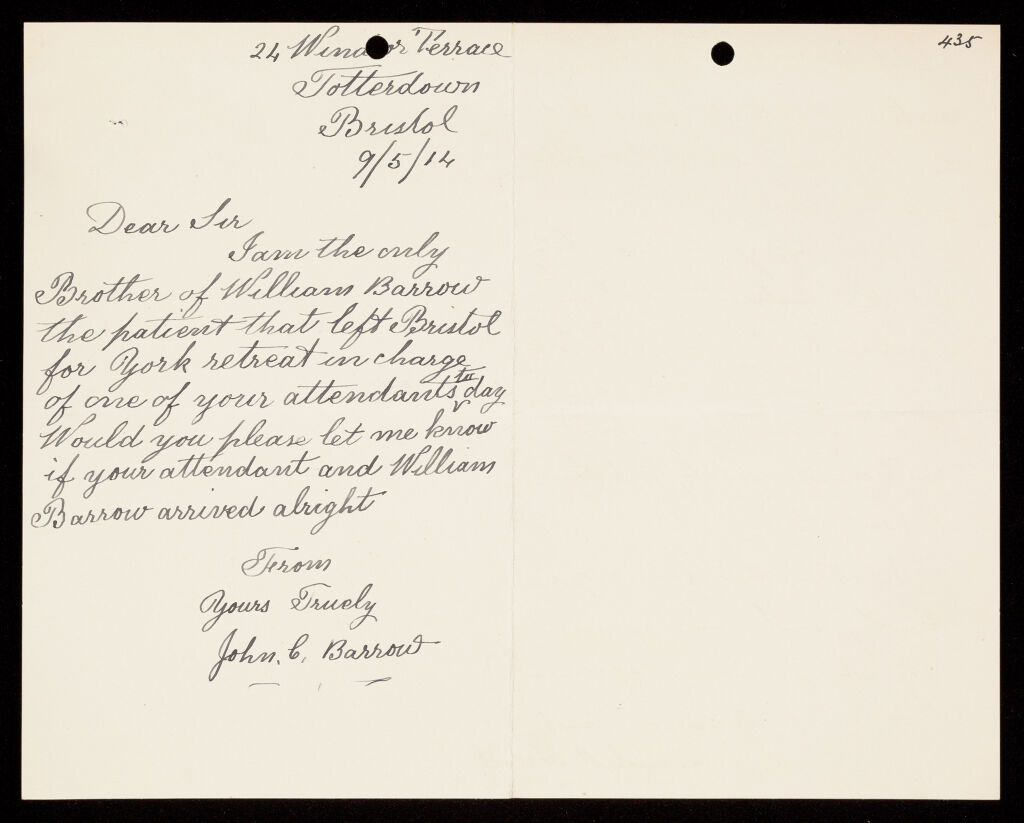 24 Windsor Terrace
Totterdown
Bristol
9/5/14
Dear Sir
I am the only
Brother of William Barrow
the patient that left Bristol
for York retreat in charge
of one of your attendants to day
Would you please let me know
if your attendant and William
Barrow arrived alright
From
Yours Truely
John. C. Barrow
435